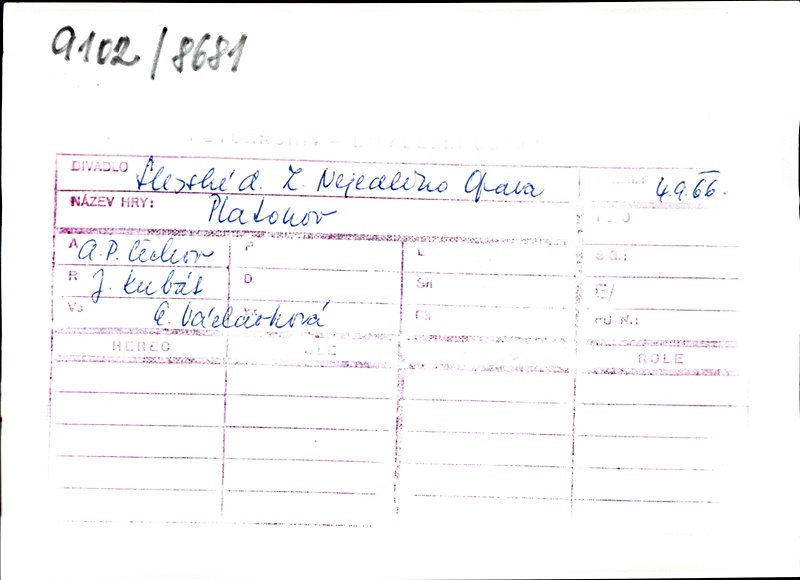 9102/8681
DIVADLO Slezské d. Z. Nejedlého Opava 4.9.66.
NÁZEV HRY: Platonov
A A.P. Čechov P L S.Q.:
R J. Kubát D Sn
Vs E. Václavková
HEREC ROLE